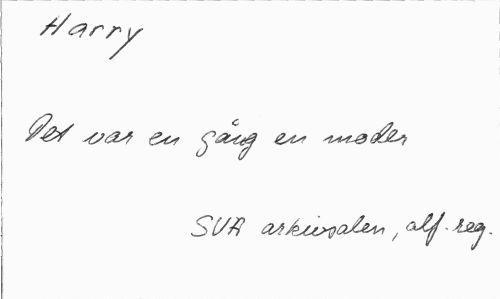 Harry
Det var en gång en moder
SVA arkivsalen, alf. reg.